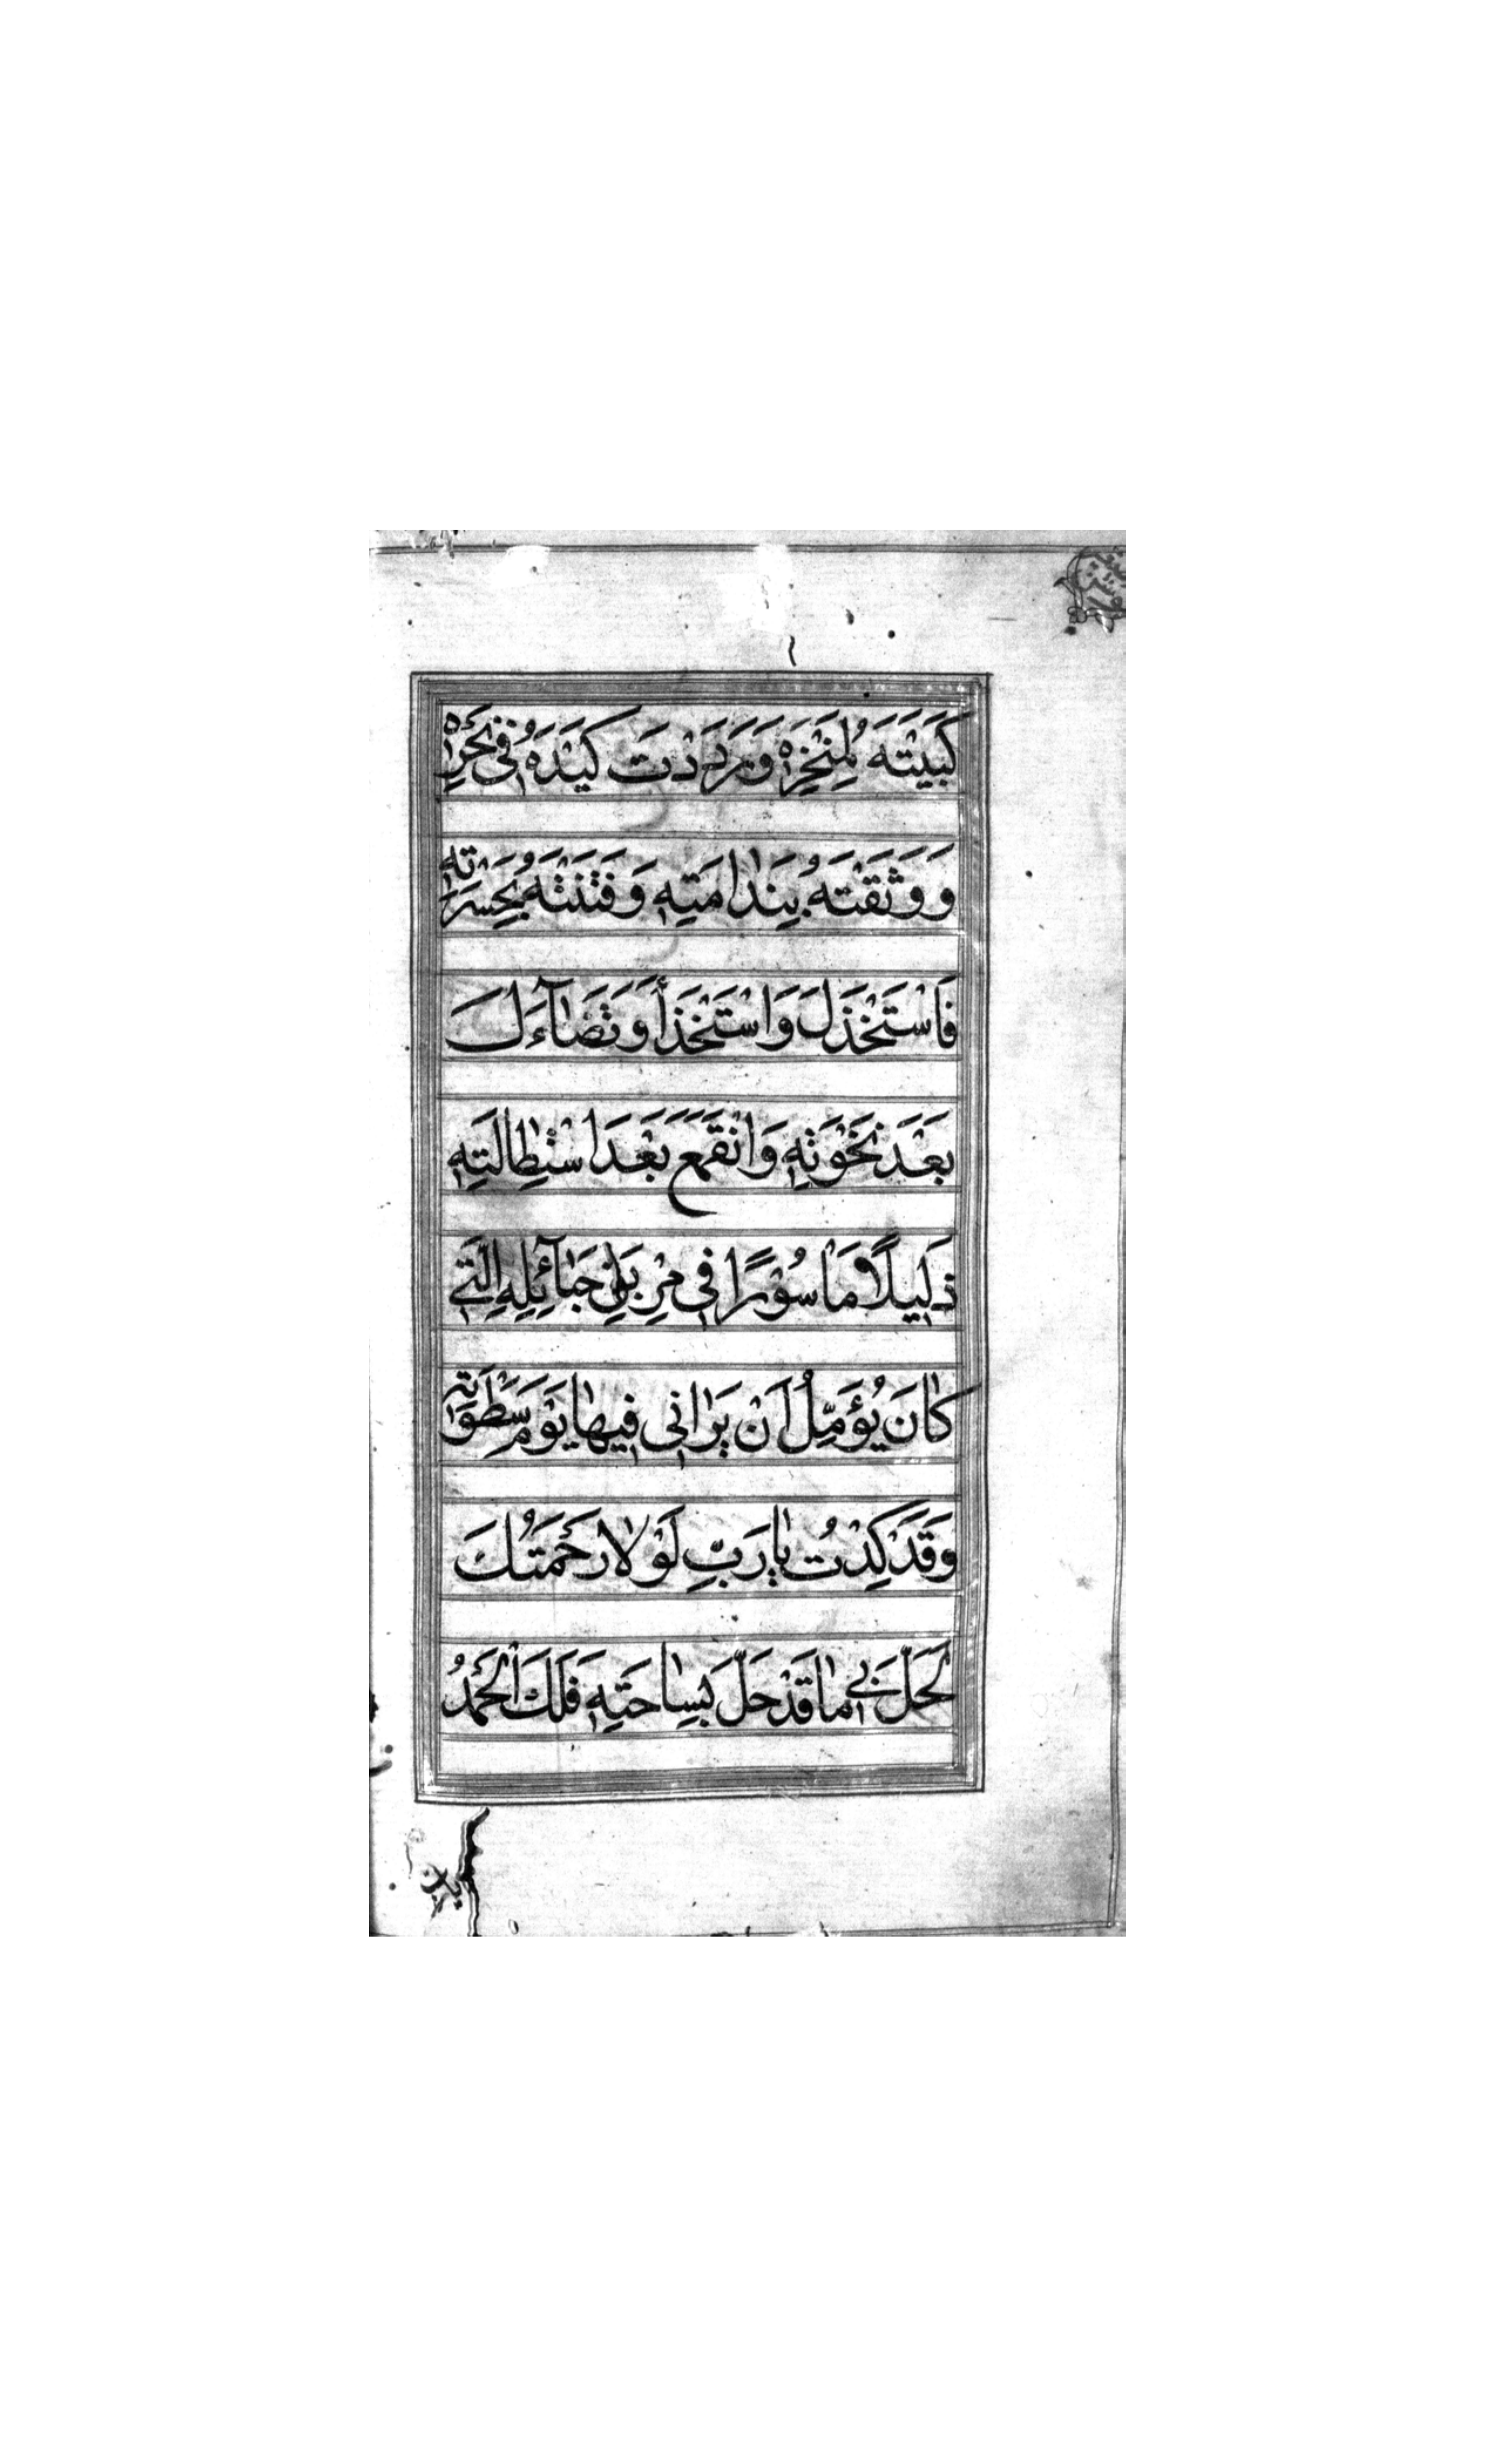 كَبَبْتَهُ لِمَنْخِرِهِ وَرَدَدْتَ كَيْدَهُ فِي نَحْرِهِ
وَوَثَقْتَهُ بِنَدَامَتِهِ وَفَتَنْتَهُ بِحَسْرَتِهِ
فَاسْتَخْذَلَ وَاسْتَخْذَأَ وَتَضَآءَلَ
بَعْدَ نَخْوَتِهِ وَانْقَمَعَ بَعْدَ اسْتِطَالَتِهِ
ذَلِيلًا مَأْسُورًا فِي رِبَقِ حَبَآئِلِهِ الَّتِي
كَانَ يُؤَمِّلُ أَنْ يَرَانِي فِيهَا يَوْمَ سَطْوَتِهِ
وَقَدْ كِدْتُ يَا رَبِّ لَوْلَا رَحْمَتُكَ
لَحَلَّ بِي مَا قَدْ حَلَّ بِسَاحَتِهِ فَلَكَ الْحَمْدُ